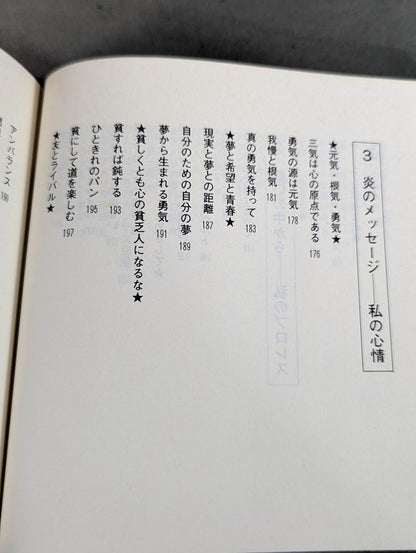 3 炎のメッセージ——私の心情
★元気・根気・勇気★
三気は心の原点である 176
勇気の源は元気 178
我慢と根気 181
真の勇気を持って 183
★夢と希望と青春★
現実と夢との距離 187
自分のための自分の夢 189
夢から生まれる勇気 191
★貧しくとも心の貧乏人になるな★
貧すれば鈍する 193
ひときれのパン 195
貧にして道を楽しむ 197
★友とライバル★
アンバランス 166